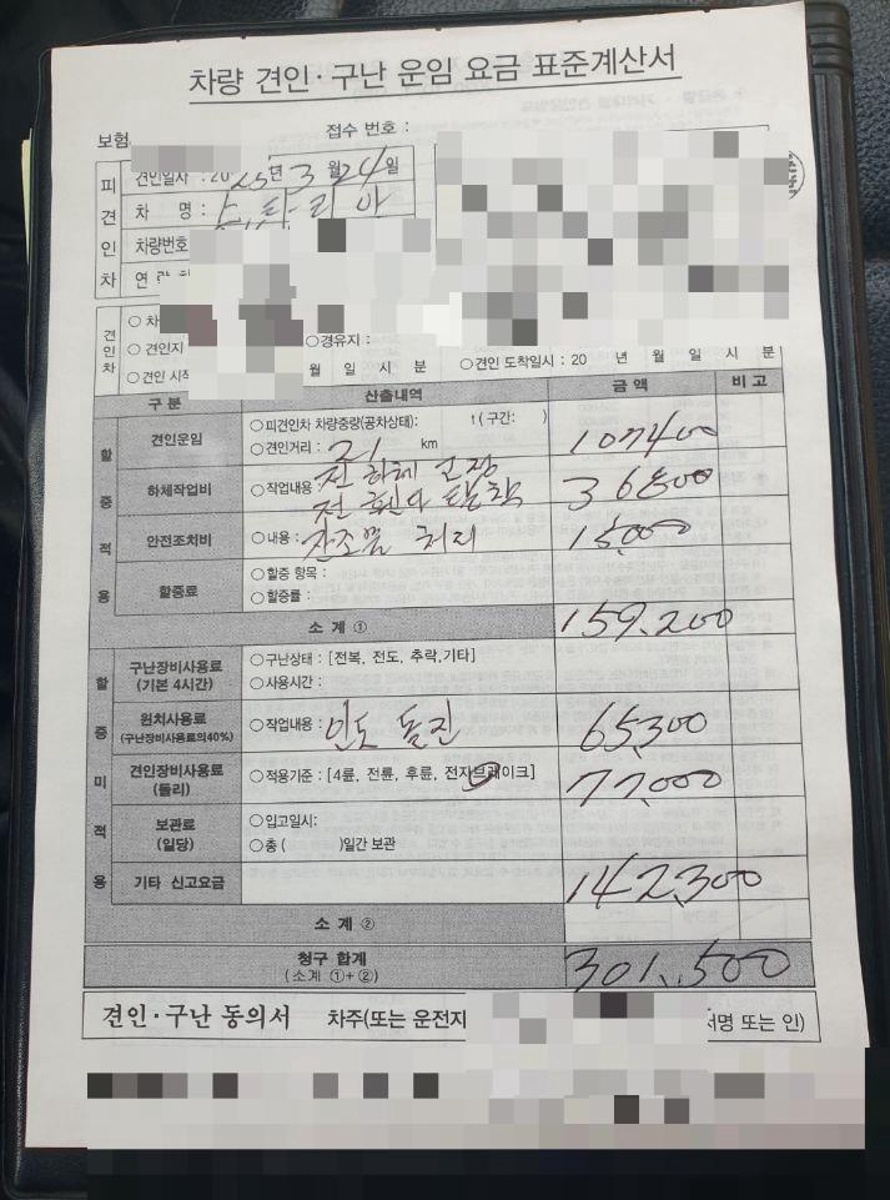 차량 견인·구난 운임 요금 표준계산서
보험
접수 번호 :
피견인차
견인일자 : 2025년 3월 24일
차 명 : 스타리아
차량번호
연락처
견인차
○ 차
○ 견인지
○경유지 :
○ 견인 시작
월 일 시 분
○견인 도착일시 : 20 년 월 일 시 분
구 분 산출내역 금 액 비 고
할증적용
견인운임 ○피견인차 차량중량(공차상태): t ( 구간: )
○견인거리 : 21 km 107400
하체작업비 ○작업내용 : 전 하체 고정
전 휀다 탈착 36800
안전조치비 ○내용 : 잔조물 처리 15,000
할증료 ○할증 항목 :
○할증률 :
소 계 ① 159,200
할증미적용
구난장비사용료 (기본 4시간) ○구난상태 : [전복, 전도, 추락,기타]
○사용시간 :
윈치사용료 (구난장비사용료의40%) ○작업내용 : 인도 돌진 65,300
견인장비사용료 (돌리) ○적용기준 : [4륜, 전륜, 후륜, 전자브레이크] 77,000
보관료 (일당) ○입고일시:
○총 ( )일간 보관
기타 신고요금 142,300
소 계 ②
청구 합계 (소계 ①+②) 301,500
견인·구난 동의서 차주(또는 운전자 서명 또는 인)